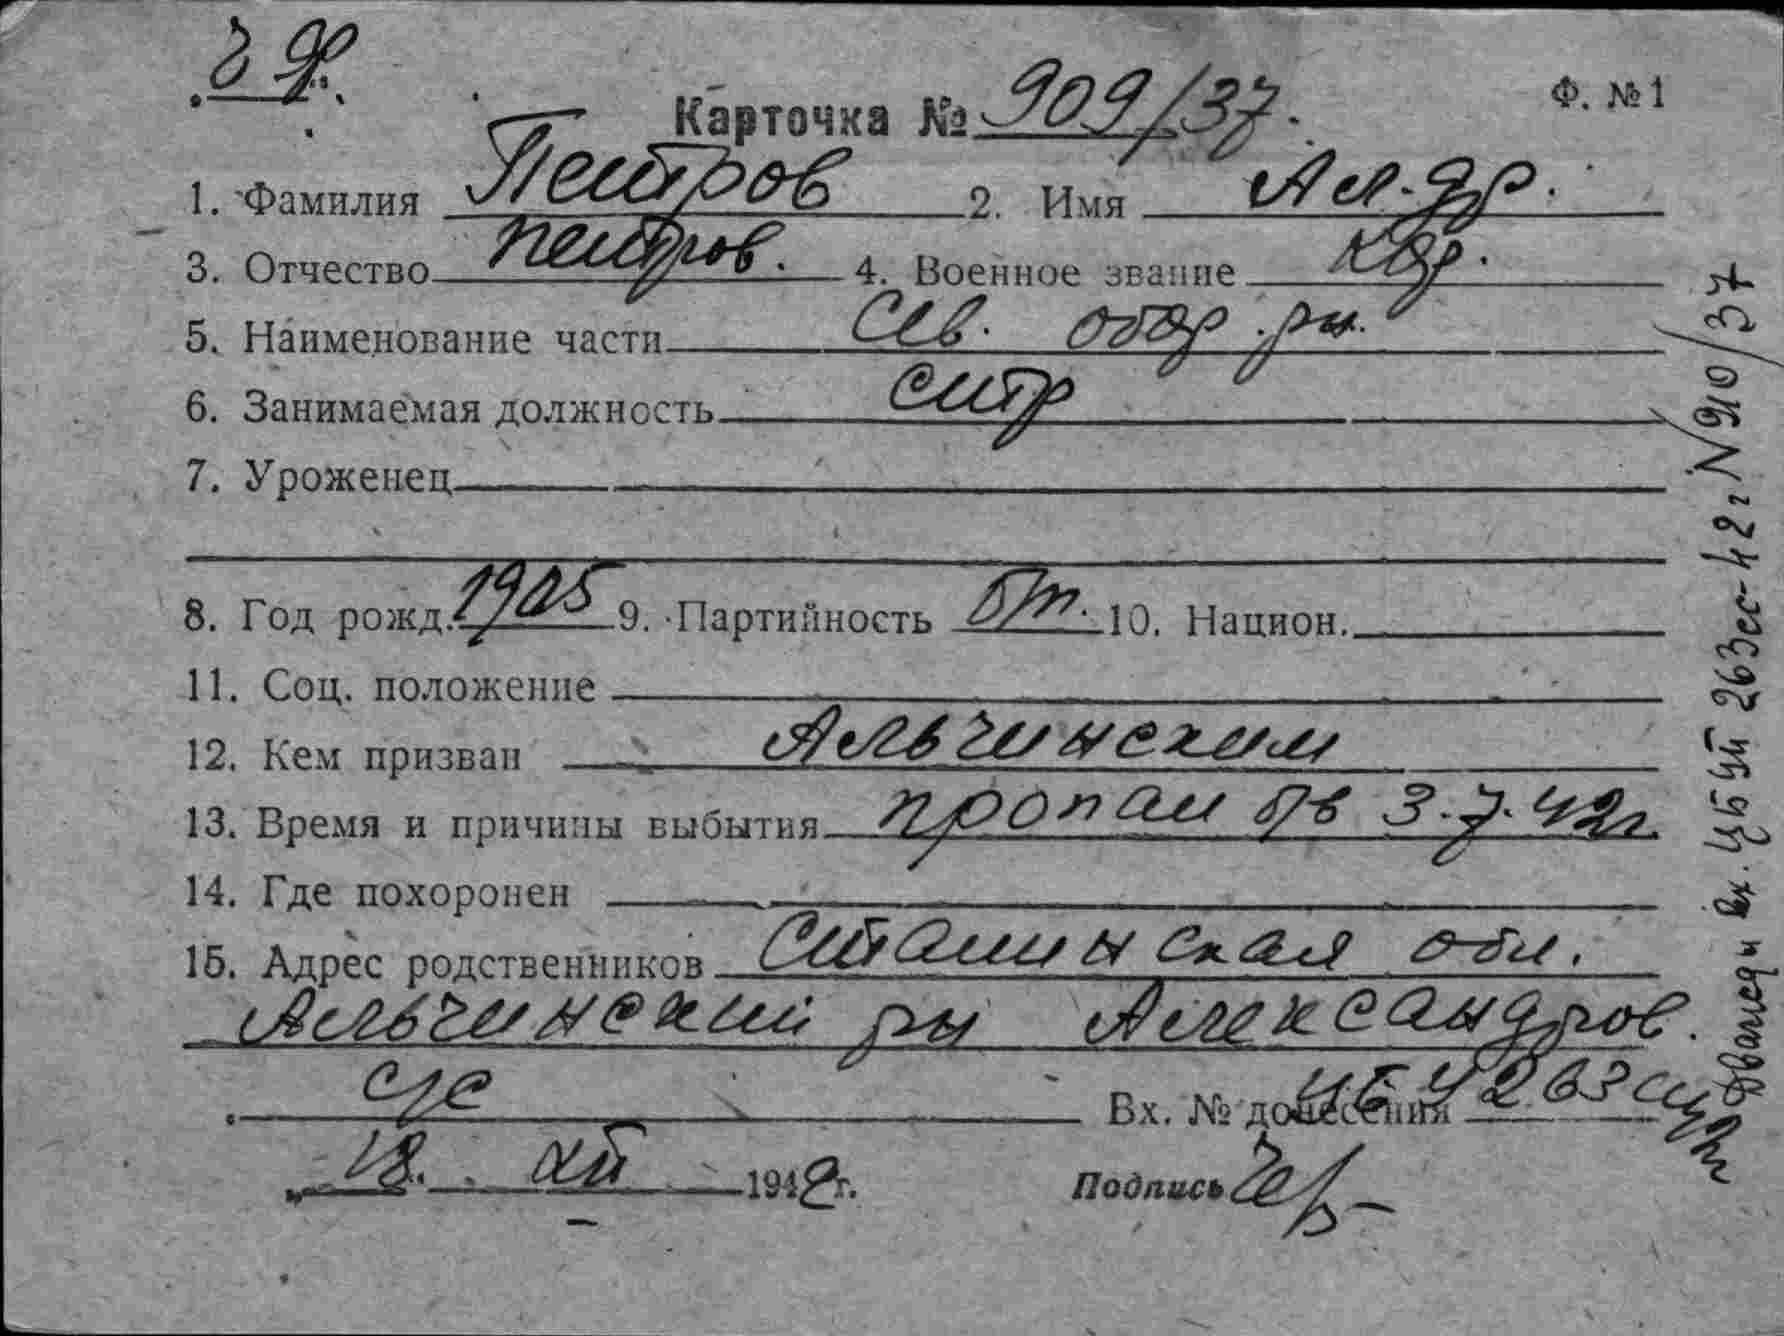 Ф. №1
Карточка № 909/37.
1. Фамилия Петров 2. Имя Ал-др.
3. Отчество Петров. 4. Военное звание кр.
5. Наименование части Сев. обор. рн.
6. Занимаемая должность стр
7. Уроженец
8. Год рожд. 1905 9. Партийность б/п. 10. Национ.
11. Соц. положение
12. Кем призван Альчинским
13. Время и причины выбытия пропал б/в 3.7.42г.
14. Где похоронен
15. Адрес родственников Сталинская обл.
Альчинский рн Александров.
с/с
Вх. № донесения ЦБ 4263
18. XII 1942г. Подпись
N 910/37